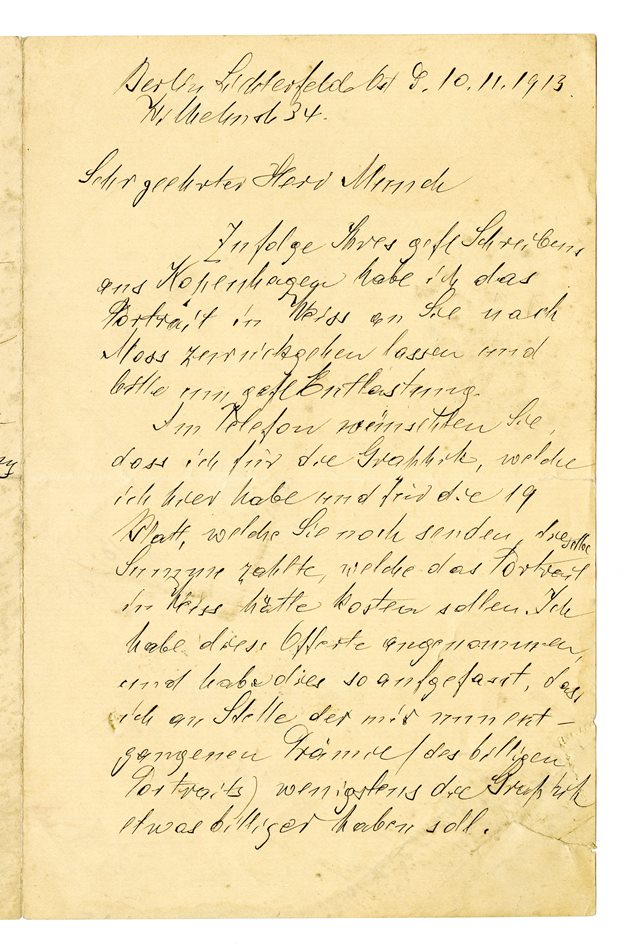 Berlin Lichterfelde Ost d. 10.11.1913.
Wilhelmstr 34.
Sehr geehrter Herr Munch
Zufolge Ihres gefl Schreibens
aus Kopenhagen habe ich das
Portrait in Weiss an Sie nach
Moss zurückgehen lassen und
bitte um gefl Entlastung.
Im Telefon wünschten Sie,
dass ich für die Graphik, welche
ich hier habe und für die 19
Blatt, welche Sie noch senden, dieselbe
Summe zahlte, welche das Portrait
in Weiss hätte kosten sollen. Ich
habe diese Offerte angenommen,
und habe dies so aufgefasst, dass
ich an Stelle der mir nun ent-
gangenen Prämie (des billigen
Portraits) wenigstens die Graphik
etwas billiger haben soll.